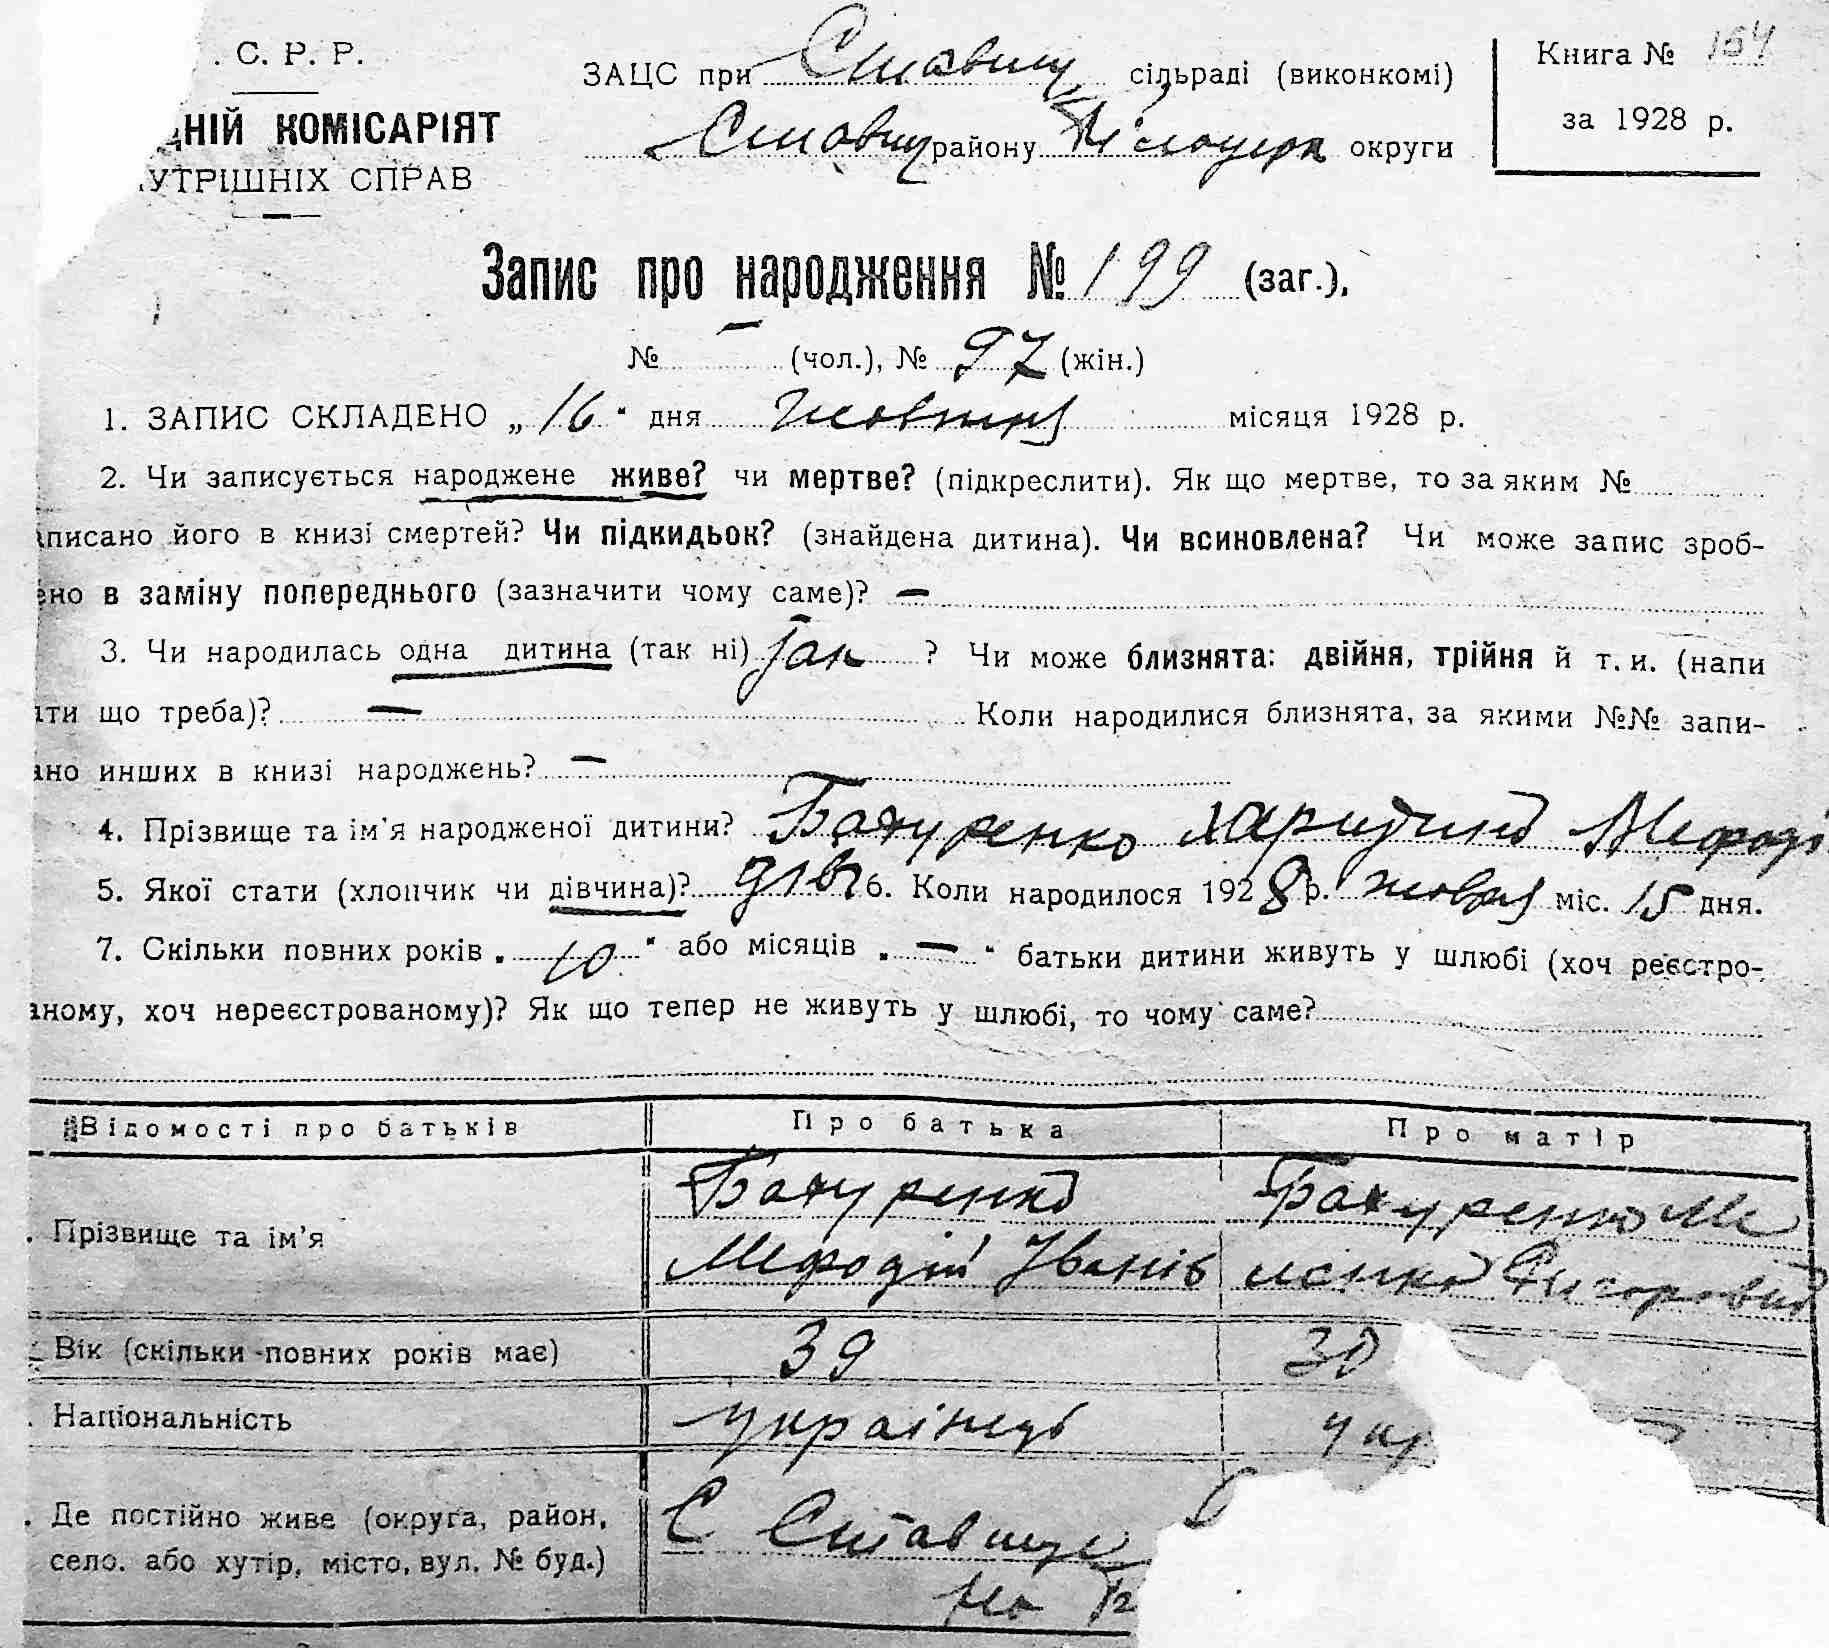 . С. Р. Р.
ДНІЙ КОМІСАРІЯТ
УТРІШНІХ СПРАВ
ЗАЦС при Ставищ сільраді (виконкомі)
Ставищ району Білоцерк округи
Книга № 154
за 1928 р.
Запис про народження № 199 (заг.),
№ — (чол.), № 97 (жін.)
1. ЗАПИС СКЛАДЕНО „ 16 “ дня жовтня місяця 1928 р.
2. Чи записується народжене живе? чи мертве? (підкреслити). Як що мертве, то за яким №
писано його в книзі смертей? Чи підкидьок? (знайдена дитина). Чи всиновлена? Чи може запис зроб-
ено в заміну попереднього (зазначити чому саме)? —
3. Чи народилась одна дитина (так ні) так ? Чи може близнята: двійня, трійня й т. и. (напи
ати що треба)? — Коли народилися близнята, за якими №№ запи-
ано инших в книзі народжень? —
4. Прізвище та ім'я народженої дитини? Бахуренко Харитина Мефоді
5. Якої стати (хлопчик чи дівчина)? дівч 6. Коли народилося 1928 р. жовтня міс. 15 дня.
7. Скільки повних років „ 10 “ або місяців „ — “ батьки дитини живуть у шлюбі (хоч реєстро-
аному, хоч нереєстрованому)? Як що тепер не живуть у шлюбі, то чому саме?
Відомості про батьків Про батька Про матір
. Прізвище та ім'я Бахуренко Бахуренко Ме
Мефодій Іванів Григоровна
. Вік (скільки повних років має) 39 30
. Національність українець укр
. Де постійно живе (округа, район, С Ставище
село. або хутір, місто, вул. № буд.)